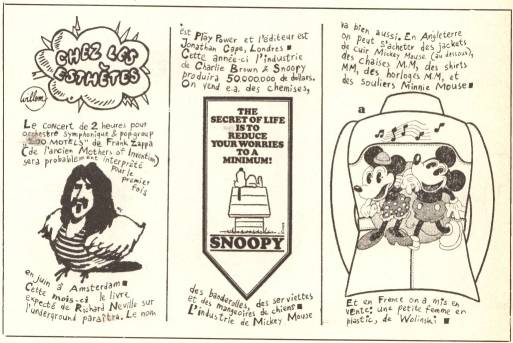 CHEZ LES
ESTHÈTES
willem
Le concert de 2 heures pour
orchestre symphonique & popgroup
"200 MOTELS" de Frank Zappa
(de l'ancien Mothers of Invention)
sera probablement interprété
pour le
premier
fois
en juin à Amsterdam ■
Cette mois-ci le livre
expecté de Richard Neville sur
l'underground paraîtra. Le nom
est Play Power et l'éditeur est
Jonathan Cape, Londres ■
Cette année-ci l'industrie
de Charlie Brown & Snoopy
produira 50.000.000 de dollars.
On vend e.a. des chemises,
THE
SECRET OF LIFE
IS TO
REDUCE
YOUR WORRIES
TO A
MINIMUM!
SNOOPY
des banderolles, des serviettes
et des mangeoires de chiens ■
L'industrie de Mickey Mouse
va bien aussi. En Angleterre
on peut s'acheter des jackets
de cuir Mickey Mouse (au dessous),
des chaises M.M, des shirts
MM, des horloges M.M, et
des souliers Minnie Mouse ■
a
Et en France on a mis en
vente: une petite femme en
plastic, de Wolinski ■